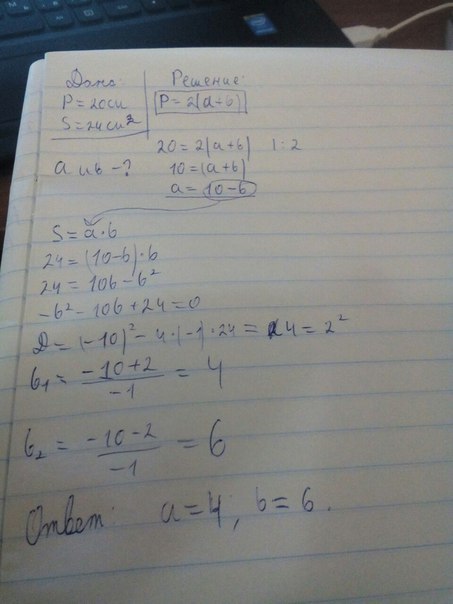 Дано:
P = 20 см
S = 24 см²
a и b - ?
Решение:
P = 2(a+b)
20 = 2(a+b) | : 2
10 = (a+b)
a = 10-b
S = a·b
24 = (10-b)·b
24 = 10b - b²
-b² - 10b + 24 = 0
D = (-10)² - 4·(-1)·24 = 4 = 2²
b₁ = (-10+2)/(-1) = 4
b₂ = (-10-2)/(-1) = 6
Ответ: a = 4, b = 6.